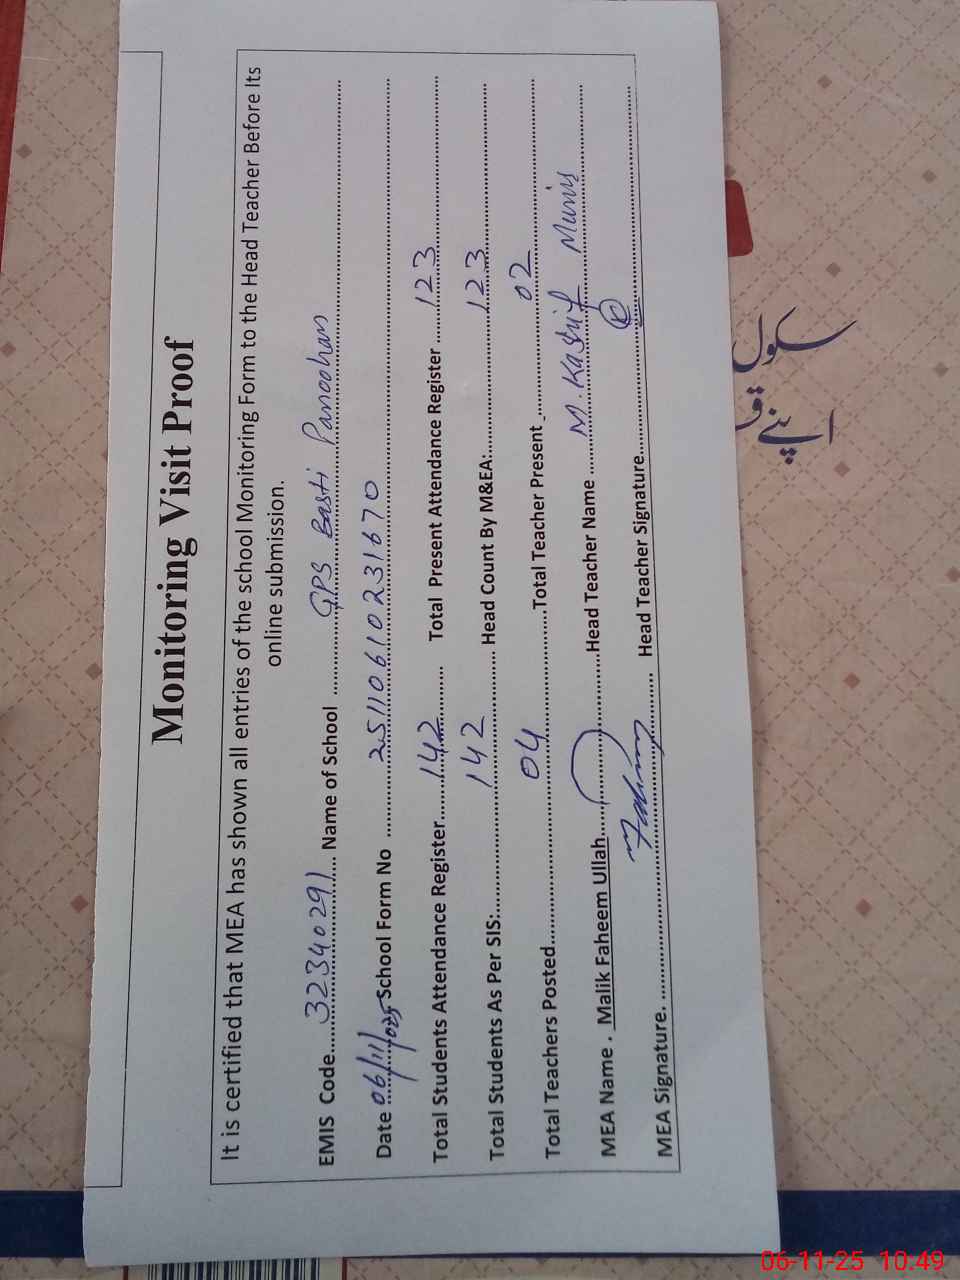 Monitoring Visit Proof
It is certified that MEA has shown all entries of the school Monitoring Form to the Head Teacher Before Its
online submission.
EMIS Code....32340291.... Name of School ..........GPS Basti Panoohan..........
Date 06/11/025 School Form No ..........2511061023 1670..........
Total Students Attendance Register......142...... Total Present Attendance Register ......123......
Total Students As Per SIS:..........142.......... Head Count By M&EA:..........123..........
Total Teachers Posted..........04..........Total Teacher Present ..........02..........
MEA Name . Malik Faheem Ullah..........Head Teacher Name ......M. Kashif
MEA Signature. .......... Head Teacher Signature..........
سکول
اپنے
06-11-25 10:49